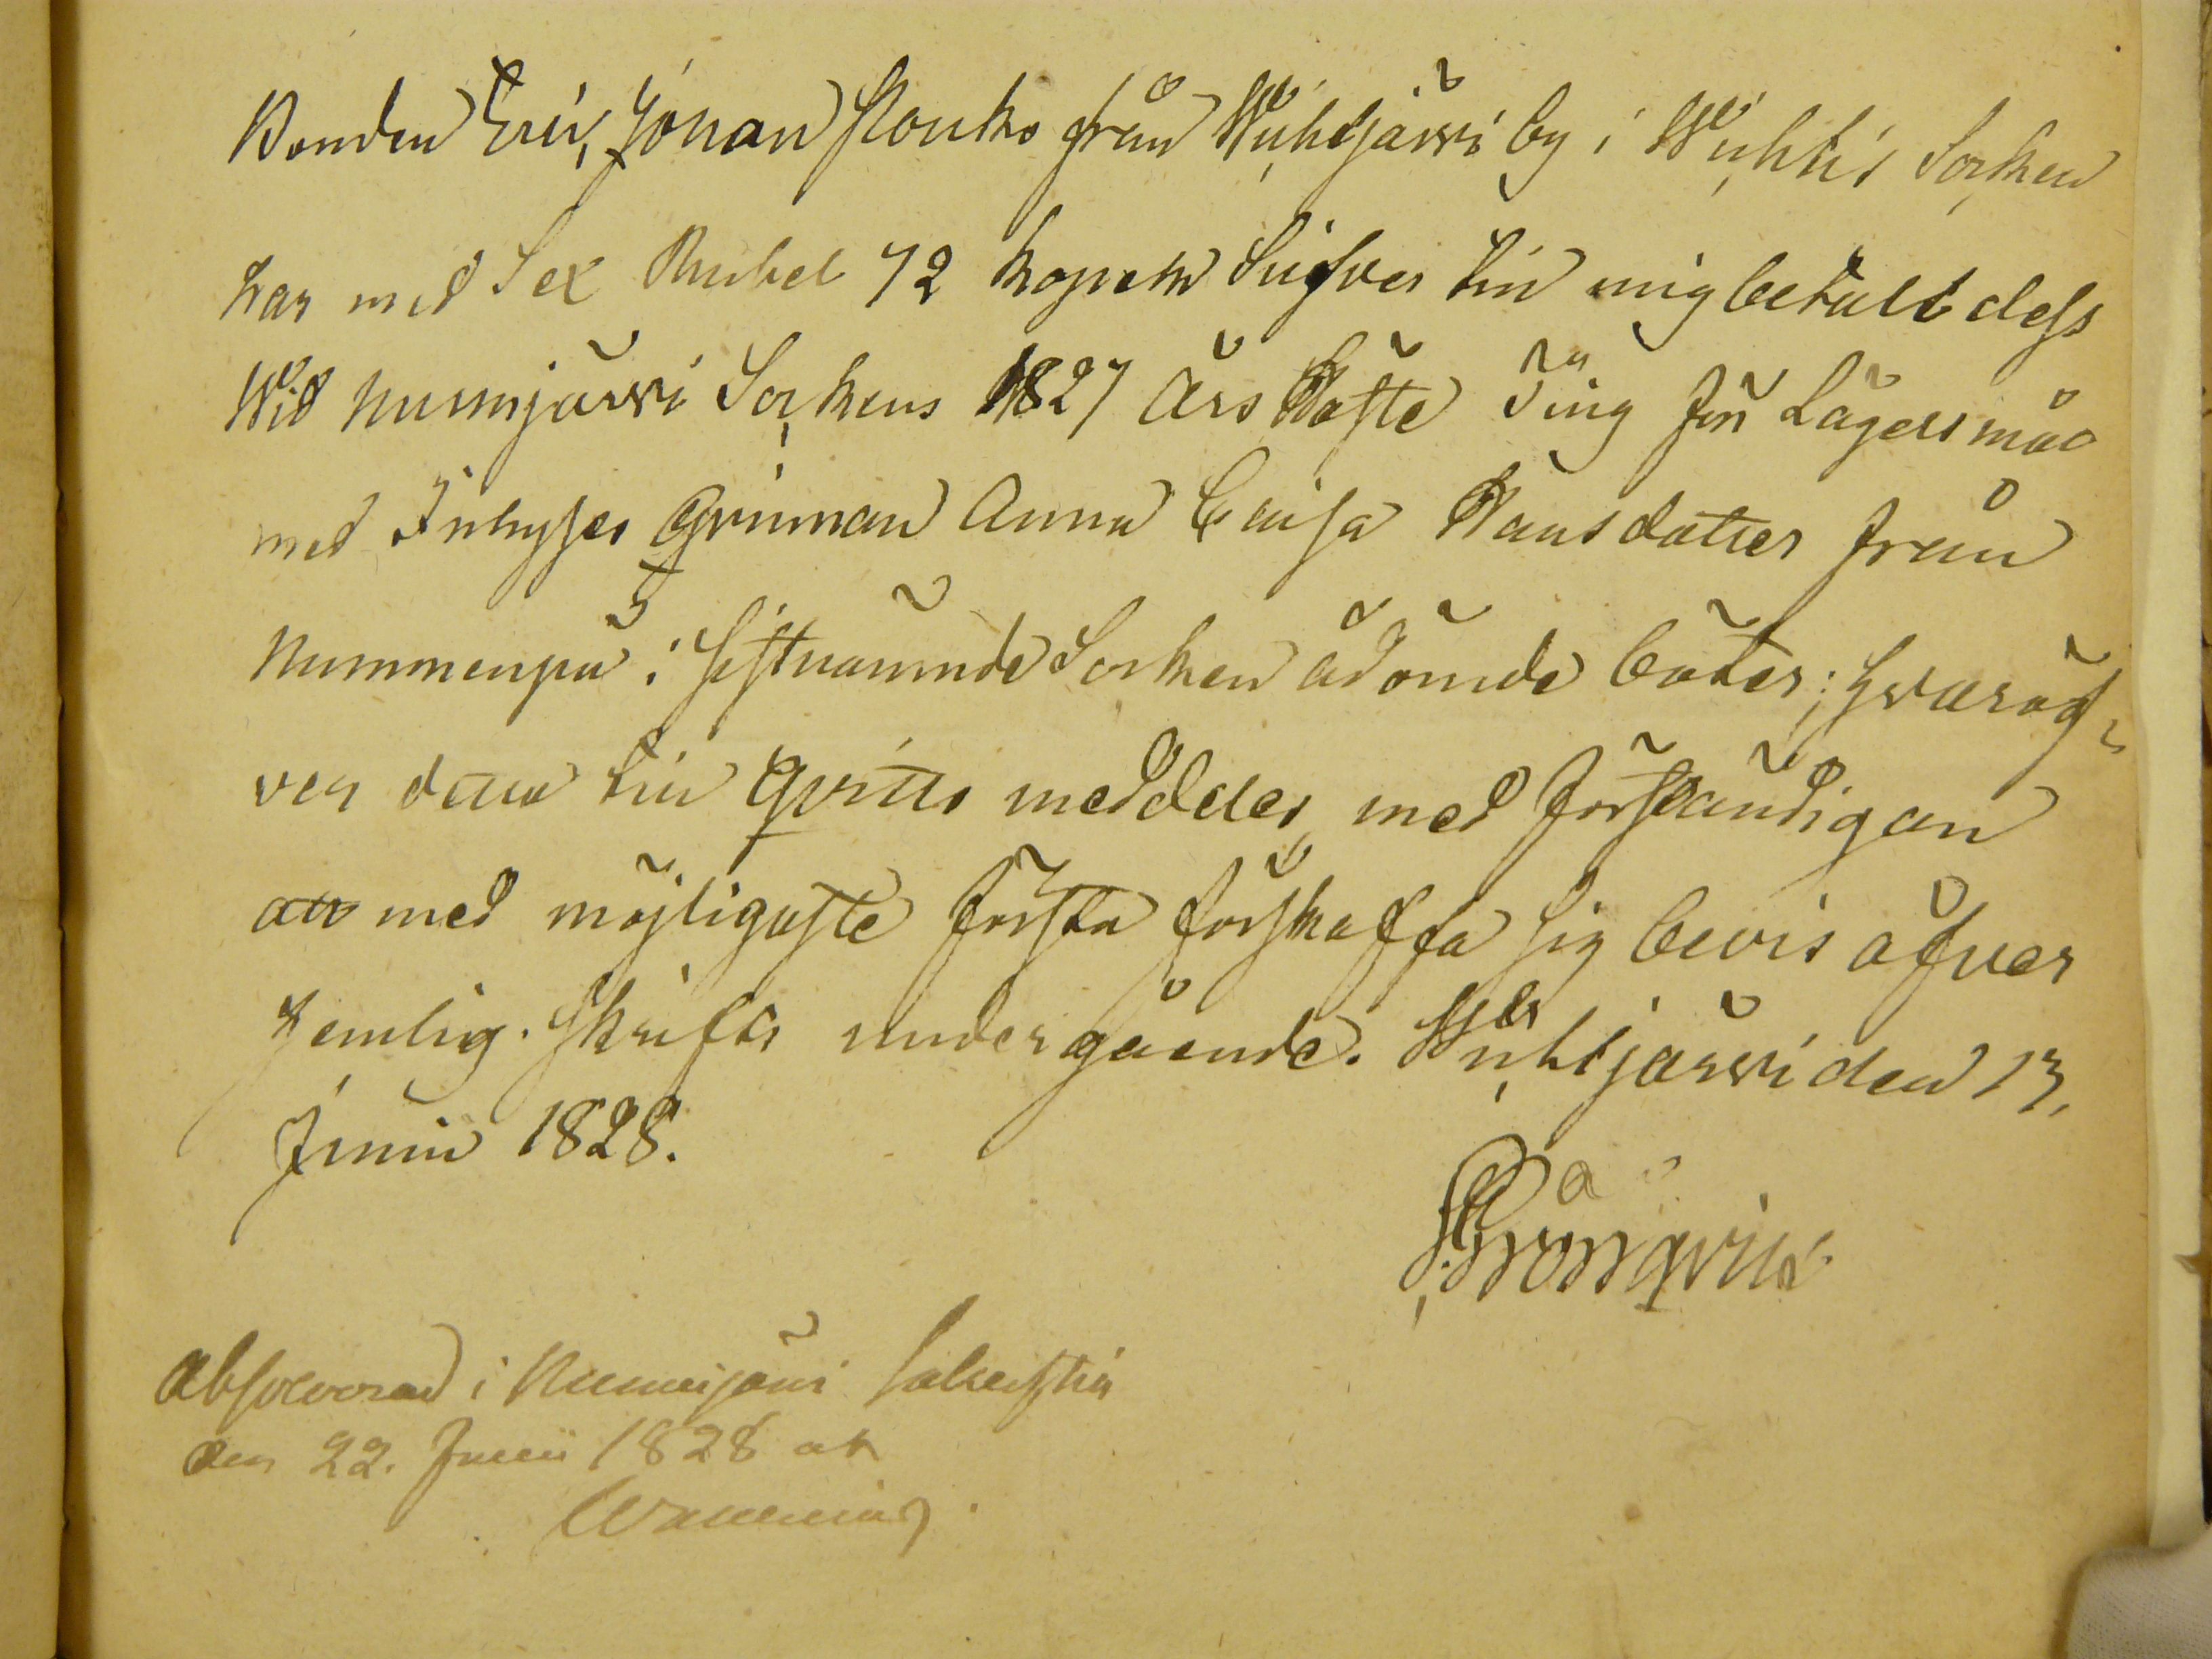 Bonden Eric Johan Stouko från Wichtjärvi by i Wichtis Socken
har med Sex Rubel 72 kopek Silfver till mig betalt dess
Wid Nummjärvi Sockens 1827 års Höste Ting för Lägersmål
med Inhyses Qvinnan Anna Caisa Hansdotter från
Nummenpä i sistnämnde Socken ådömde böter; hvaröf-
ver denna till qvitto meddeles, med förständigan
att med möjligaste första förskaffa sig bevis öfver
hemlig. skrifts undergående. Wichtjärvi den 13.
Junii 1828.
Grönqvist
Absolverad i Nummijärvi
den 22. Junii 1828 att